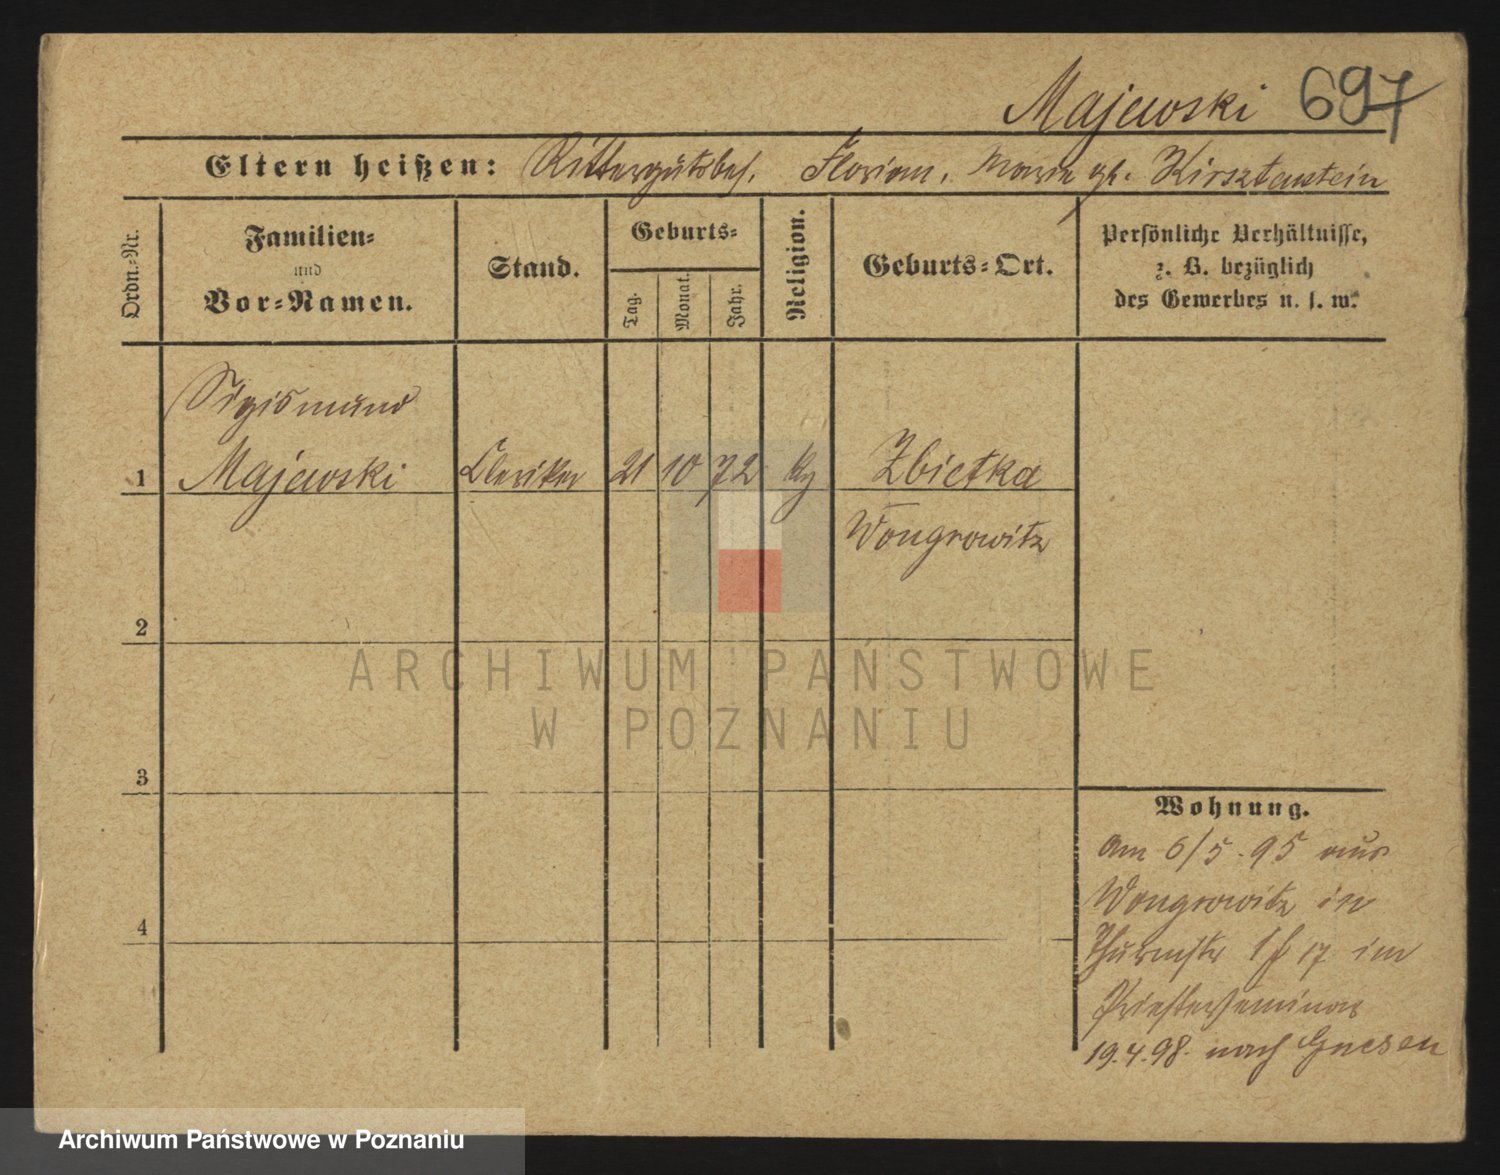 Majewski 697
Eltern heißen: Rittergutsbes. Florian, Marie gb. Kirsztenstein
Ordn.-Nr.
Familien-
und
Vor-Namen.
Stand.
Geburts-
Tag.
Monat.
Jahr.
Religion.
Geburts-Ort.
Persönliche Verhältnisse,
z. B. bezüglich
des Gewerbes u. s. w.
Sigismund
1 Majewski Kleriker 21 10 72 Zbietka
Wongrowitz
2
ARCHIWUM PAŃSTWOWE
W POZNANIU
3
4
Wohnung.
am 6/5.95 aus
Wongrowitz in
Thurmstr 17 im
Priesterseminar
19.4.98. nach Gnesen
Archiwum Państwowe w Poznaniu